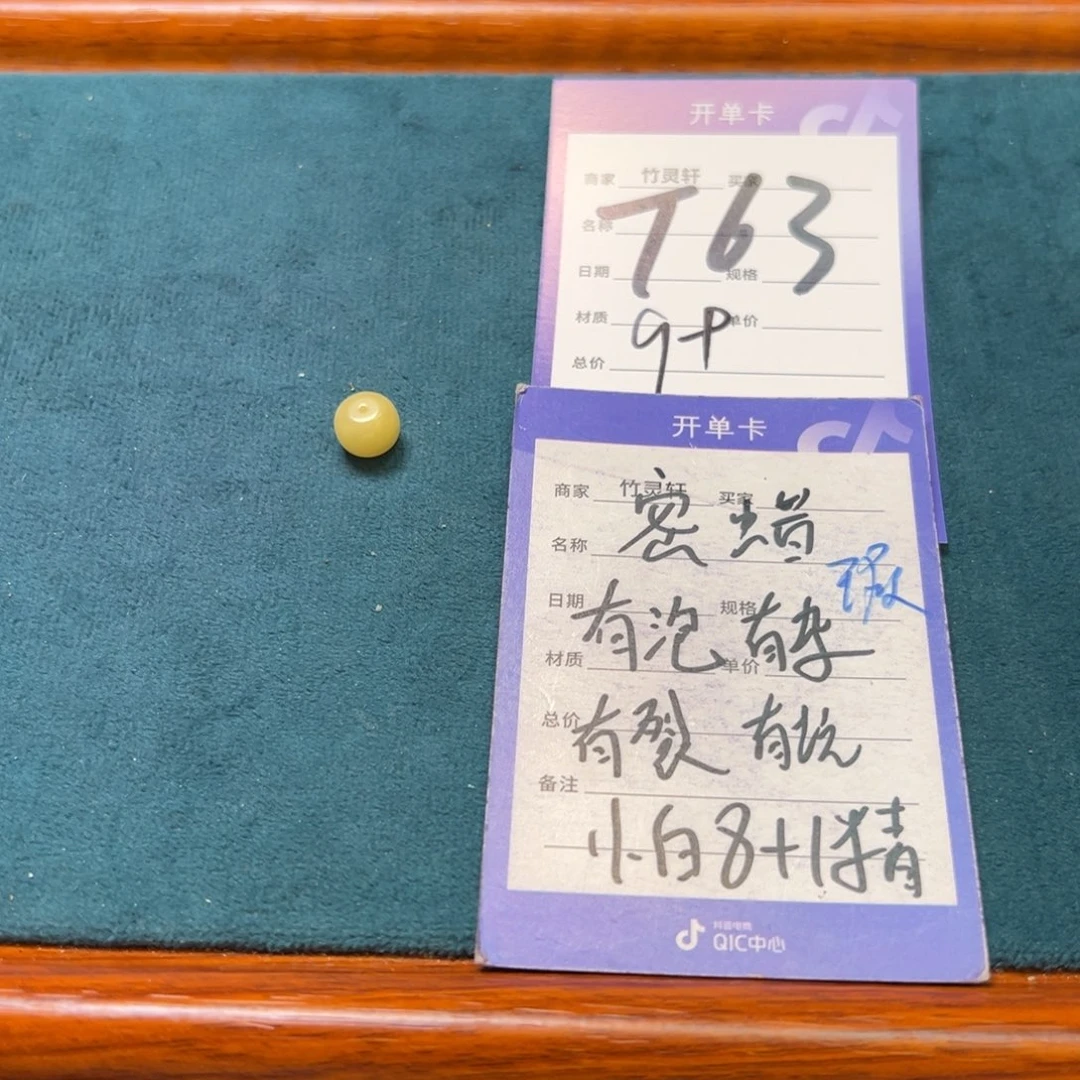 开单卡
商家 竹灵轩 买家
T63
名称
日期 规格
材质 单价
9+
总价
开单卡
商家 竹灵轩 买家
密蜡
名称
日期 规格
有泡 有杂
材质 单价
总价
有裂 有坑
备注
小白8+1精
抖音电商
QIC中心